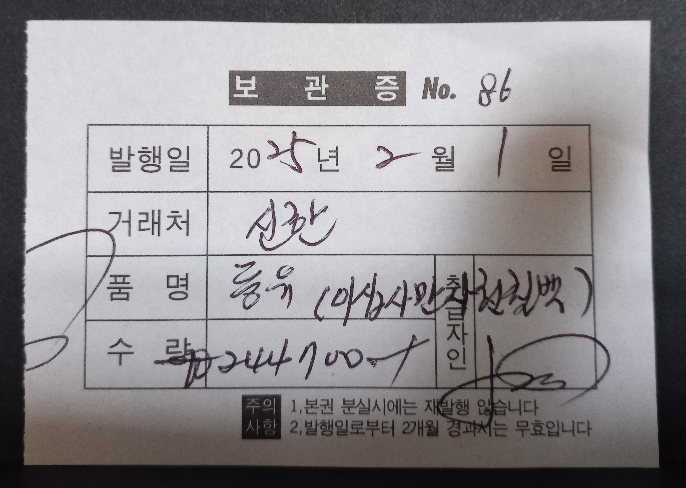 보관증 No. 86
발행일 2025년 2월 1일
거래처 신한
품명 등유 (이십사만사천칠백)
수량 ₩244700
취급자인
주의사항 1,본권 분실시에는 재발행 않습니다
2,발행일로부터 2개월 경과시는 무효입니다